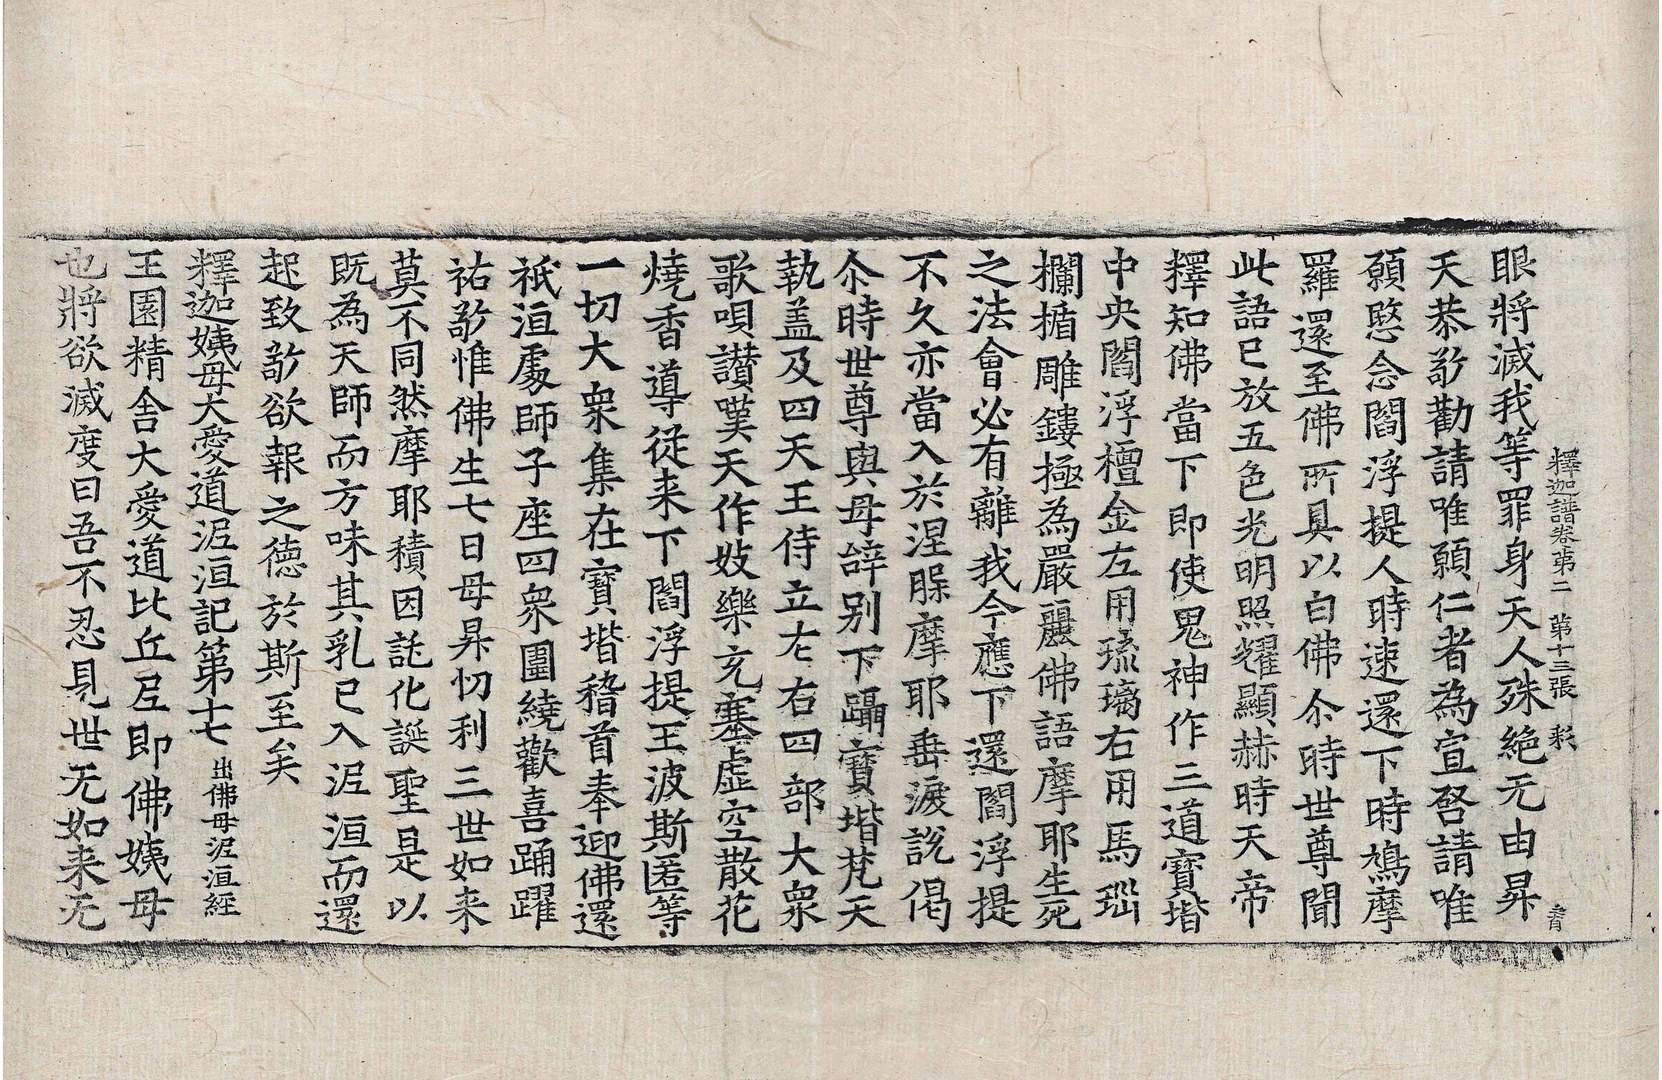 釋迦譜卷第二　第十三張　彩
眼將滅我等罪身天人殊絶无由昇
天恭敬勸請唯願仁者為宣啓請唯
願愍念閻浮提人時速還下時鳩摩
羅還至佛所具以白佛尒時世尊聞
此語已放五色光明照耀顯赫時天帝
釋知佛當下即使鬼神作三道寶堦
中央閻浮檀金左用琉璃右用馬瑙
欄楯雕鏤極為嚴麗佛語摩耶生死
之法會必有離我今應下還閻浮提
不久亦當入於涅槃摩耶垂淚說偈
尒時世尊與母辝別下躡寶堦梵天
執盖及四天王侍立左右四部大衆
歌唄讃嘆天作妓樂充塞虛空散花
燒香導從来下閻浮提王波斯匿等
一切大衆集在寶堦稽首奉迎佛還
祇洹處師子座四衆圍繞歡喜踊躍
祐敬惟佛生七日母昇忉利三世如来
莫不同然摩耶積因託化誕聖是以
既為天師而方味其乳已入泥洹而還
起致敬欲報之德於斯至矣
釋迦姨母大愛道泥洹記第十七 出佛母泥洹経
王園精舍大愛道比丘尼即佛姨母
也將欲滅度曰吾不忍見世无如来无